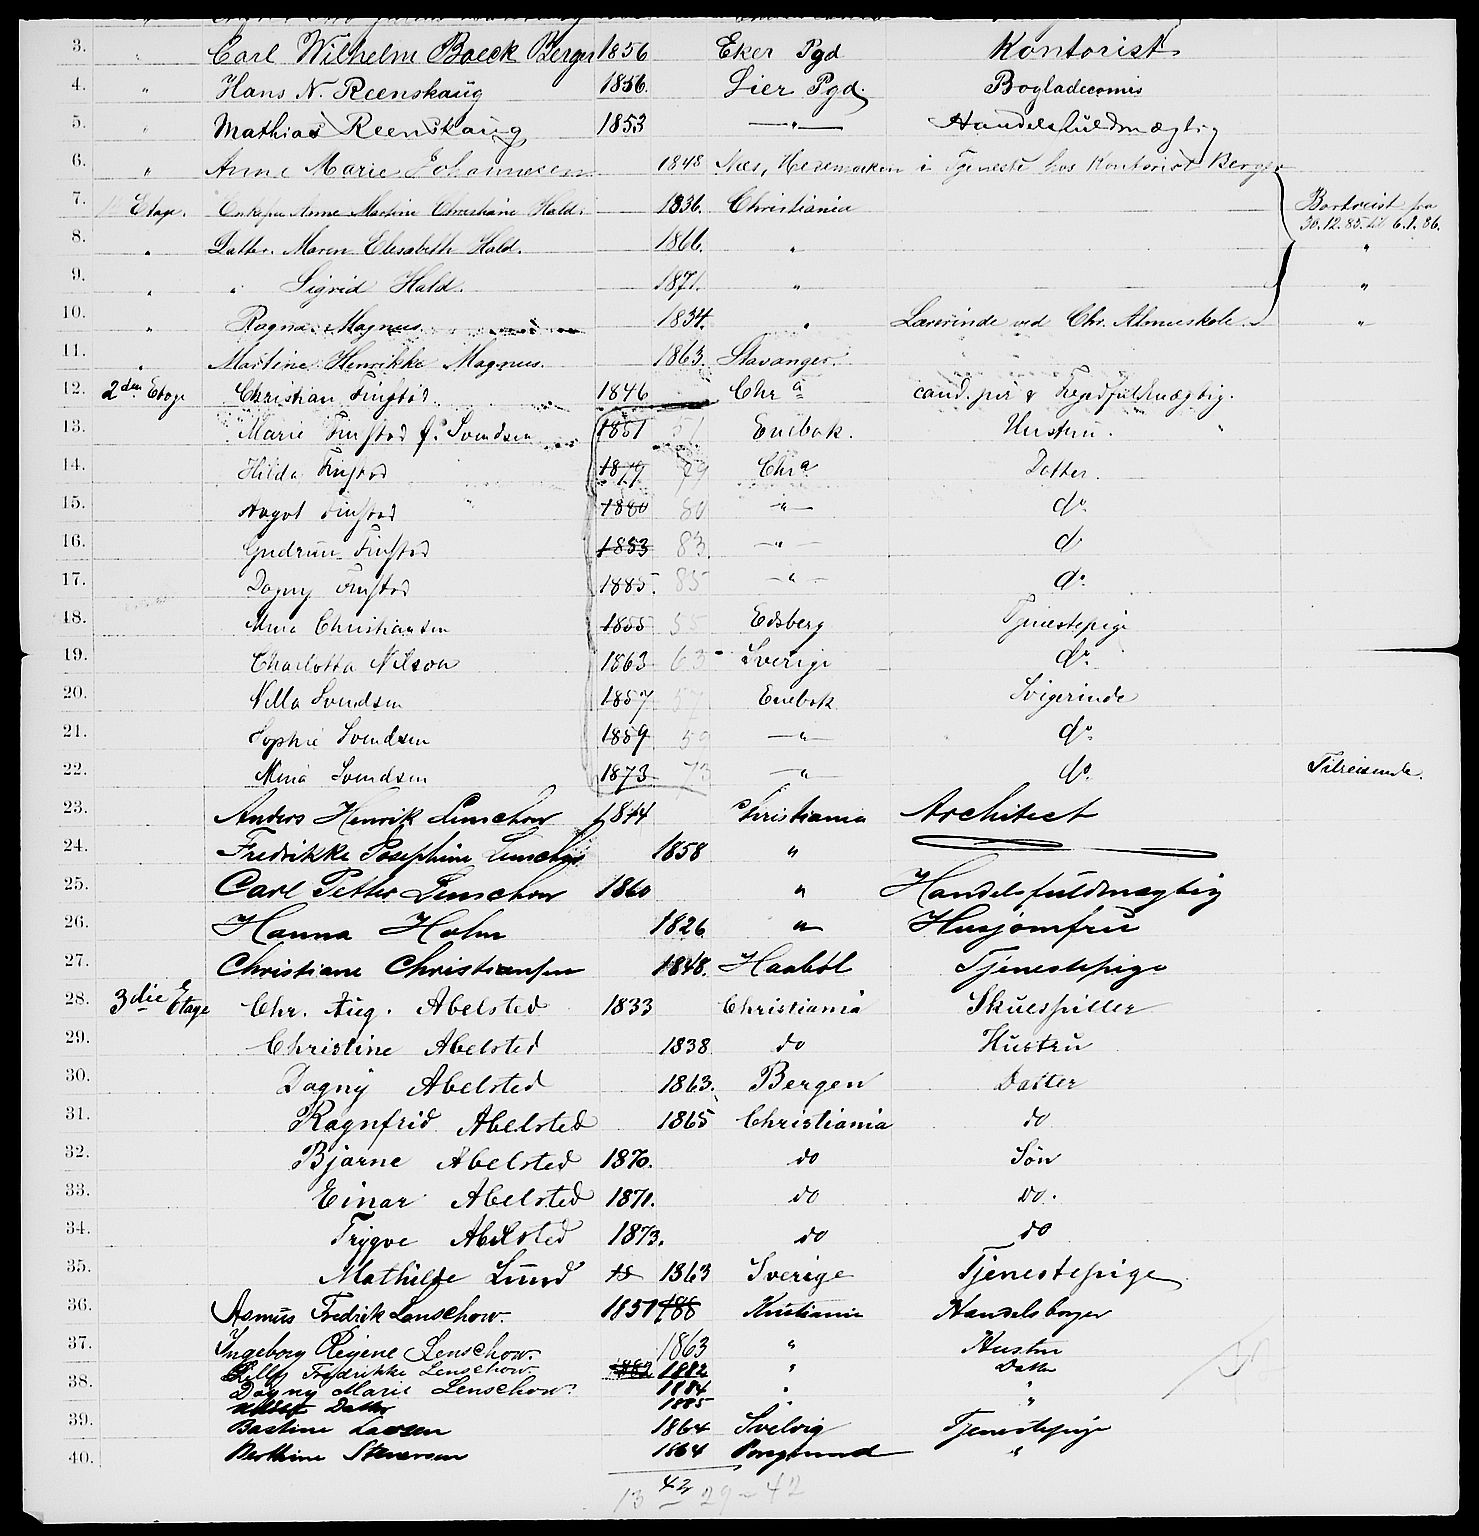 3. " Carl Wilhelm Boeck Berger 1856 Eker Pgd Kontorist
4. " Hans N. Reenskaug 1856. Lier Pgd. Bogladecomis
5. " Mathias Reenskaug 1853 —"— Handelsfuldmægtig
6. " Anne Marie Johannesen 1848 Næs, Hedemarken i Tjeneste hos Kontorist Berger
7. Etage. Enkefru Anne Martine Christiane Hald. 1836. Christiania Bortreist fra
30.12.85 til 6.1.86.
8. " Datter. Maren Elisabeth Hald. 1866. " "
9. " " Sigrid Hald. 1871. " "
10. " Ragna Magnus 1834. " Lærerinde ved Chr. Almueskole. "
11. " Martine Henrikke Magnus. 1863. Stavanger.
12. 2den Etage Christian Finstad 1846 Chra cand. jur &
13. Marie Finstad f. Svendsen 1851 51 Enebak. Hustru.
14. Hilda Finstad 1879 79 Chra Datter.
15. Aagot Finstad 1880 80 —"— do
16. Gudrun Finstad 1883 83. —"— do
17. Dagny Finstad 1885. 85 —"— do
18. Christiansen 1855 55 Edsberg Tjenestepige
19. Charlotta Nilson 1863 63 Sverige do
20. Nilla Svendsen 1857 57 Enebak Svigerinde
21. Sophie Svendsen 1859 59 —"— do
22. Mina Svendsen 1873. 73 —"— do. Tilreisende.
23. Anders Henrik Lenschow 1844 Christiania Architect
24. Fredrikke Josephine Lenschow 1858 "
25. Carl Petter Lenschow 1860 " Handelsfuldmægtig
26. Hanna Holm 1826 " Husjomfru
27. Christiane Christiansen 1848. Haabøl Tjenestepige
28. 3die Etage Chr. Aug. Abelsted 1833 Christiania Skuespiller
29. Christine Abelsted 1838 do Hustru
30. Dagny Abelsted 1863. Bergen Datter
31. Ragnfrid Abelsted 1865 Christiania do
32. Bjarne Abelsted 1870. do Søn
33. Einar Abelsted 1871. do do.
34. Trygve Abelsted 1873. do do
35. Mathilde Lund 18 1863 Sverige Tjenestepige
36. Asmus Fredrik Lenschow. 1857 188 Kristiania Handelsborger
37. Ingeborg Regine Lenschow. 1863 " Hustru
Fredrikke Lenschow 1882 1882 " Datter
38. Dagny Marie Lenschow. 1884 " "
Datter 1885 " "
39. Bastine Larsen 1864 Svelvig Tjenestepige
40. Berthine 1864 Porsgrund "
42
13 — 29 — 42